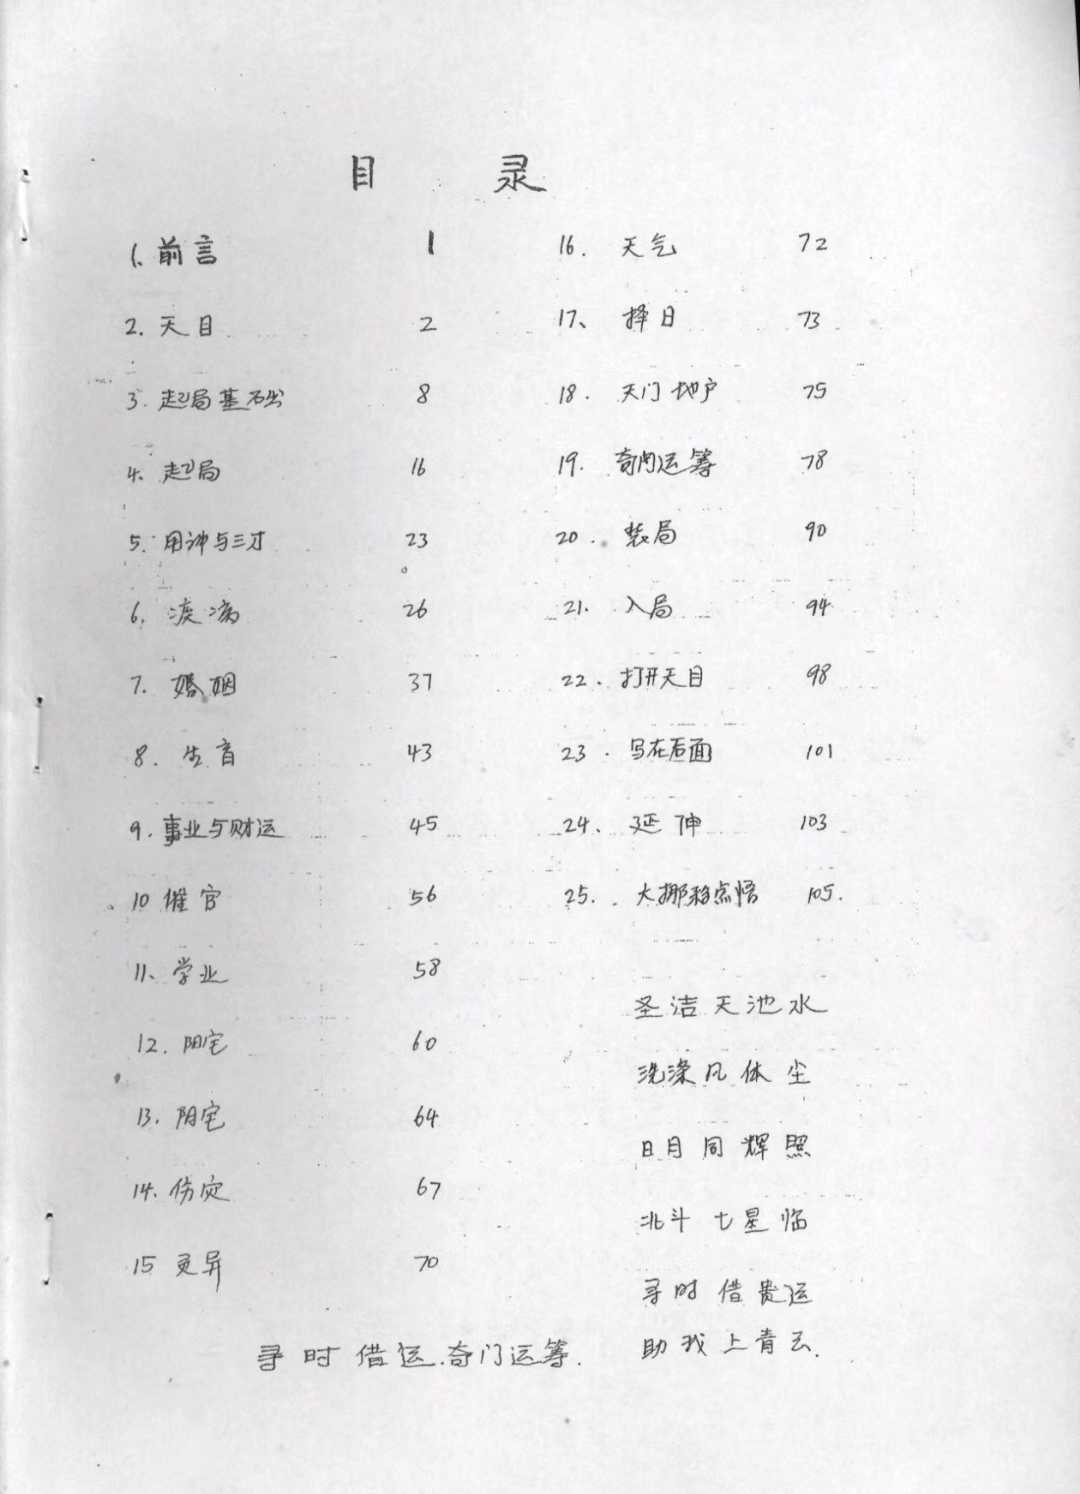 目 录
1. 前言 1
2. 天目 2
3. 起局基础 8
4. 起局 16
5. 用神与三才 23
6. 疾病 26
7. 婚姻 37
8. 生育 43
9. 事业与财运 45
10 催官 56
11、学业 58
12. 阳宅 60
13. 阴宅 64
14. 伤灾 67
15 灵异 70
16. 天气 72
17、择日 73
18. 天门地户 75
19. 奇门运筹 78
20. 装局 90
21. 入局 94
22. 打开天目 98
23. 写在后面 101
24、延伸 103
25. 大挪移点悟 105.
圣洁天池水
洗涤凡体尘
日月同辉照
北斗七星临
寻时借贵运
助我上青云.
寻时借运.奇门运筹.